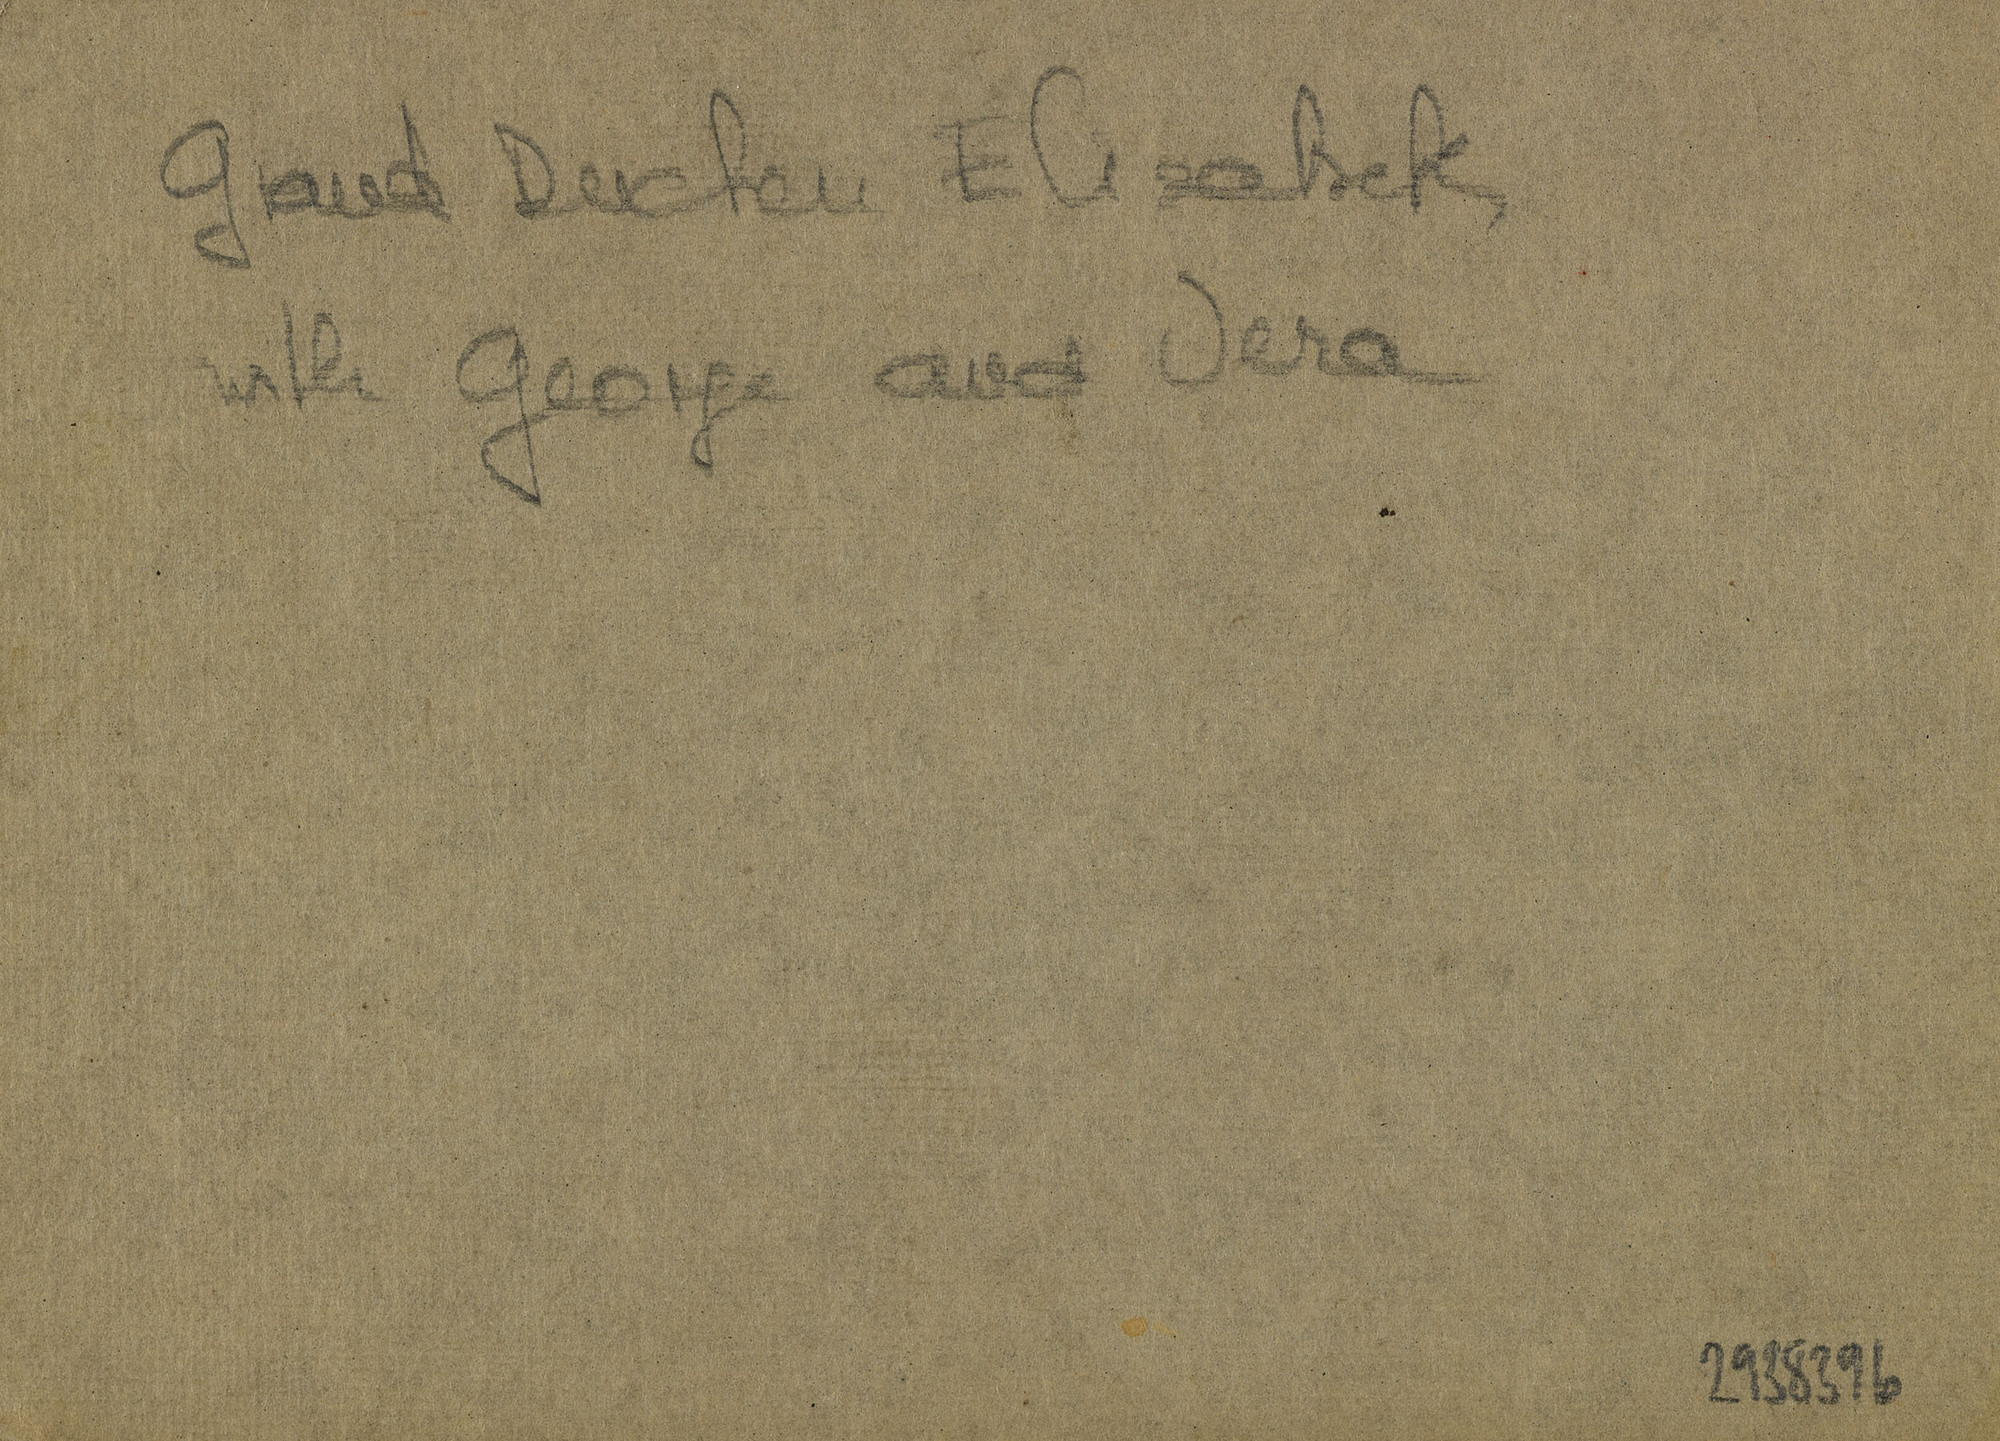 Grand Duchess Elizabeth,
with George and Vera
2938396